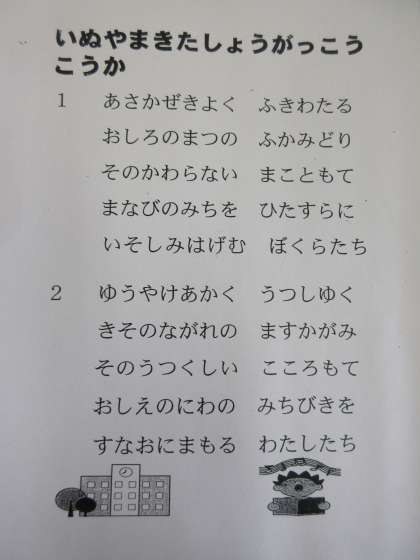 いぬやまきたしょうがっこう
こうか
1 あさかぜきよく ふきわたる
おしろのまつの ふかみどり
そのかわらない まこともて
まなびのみちを ひたすらに
いそしみはげむ ぼくらたち
2 ゆうやけあかく うつしゆく
きそのながれの ますかがみ
そのうつくしい こころもて
おしえのにわの みちびきを
すなおにまもる わたしたち